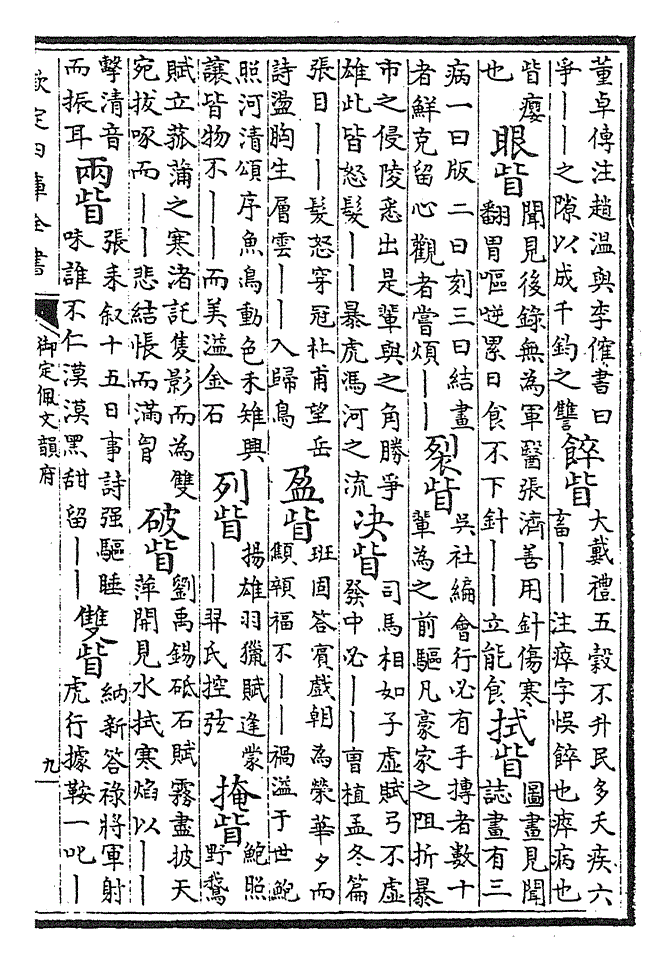 董卓傳注趙溫與李傕書曰
爭丨丨之隙以成千鈞之讐
䬪眥
大戴禮五穀不升民多夭疾六
畜丨丨注瘁字悞䬪也瘁病也
眥癭
也
眼眥
聞見後錄無為軍醫張濟善用針傷寒
翻胃嘔逆累日食不下針丨丨立能食
拭眥
圖畫見聞
誌畫有三
病一曰版二曰刻三曰結畫
者鮮克留心觀者當煩丨丨
裂眥
吳社編會行必有手搏者數十
輩為之前驅凡豪家之阻折暴
市之侵陵悉出是輩與之角勝爭
雄此皆怒髮丨丨暴虎馮河之流
决眥
司馬相如子虛賦弓不虛
發中必丨丨曹植孟冬篇
張目丨丨髮怒穿冠杜甫望岳
詩盪胸生層雲丨丨入歸鳥
盈眥
班固答賓戲朝為榮華夕而
顦顇福不丨丨禍溢于世鮑
照河清頌序魚鳥動色禾雉興
讓皆物不丨丨而美溢金石
列眥
揚雄羽獵賦逢蒙
丨丨羿氏控弦
掩眥
鮑照
野鵞
賦立菰蒲之寒渚託隻影而為雙
宛拔啄而丨丨悲結悵而滿胷
破眥
劉禹錫砥石賦霧盡披天
萍開見水拭寒焰以丨丨
擊清音
而振耳
兩眥
張耒叙十五日事詩强驅睡
味誰不仁漠漠黑甜留丨丨
雙眥
納新答祿將軍射
虎行據鞍一叱丨
欽定四庫全書
御定佩文韻府
九